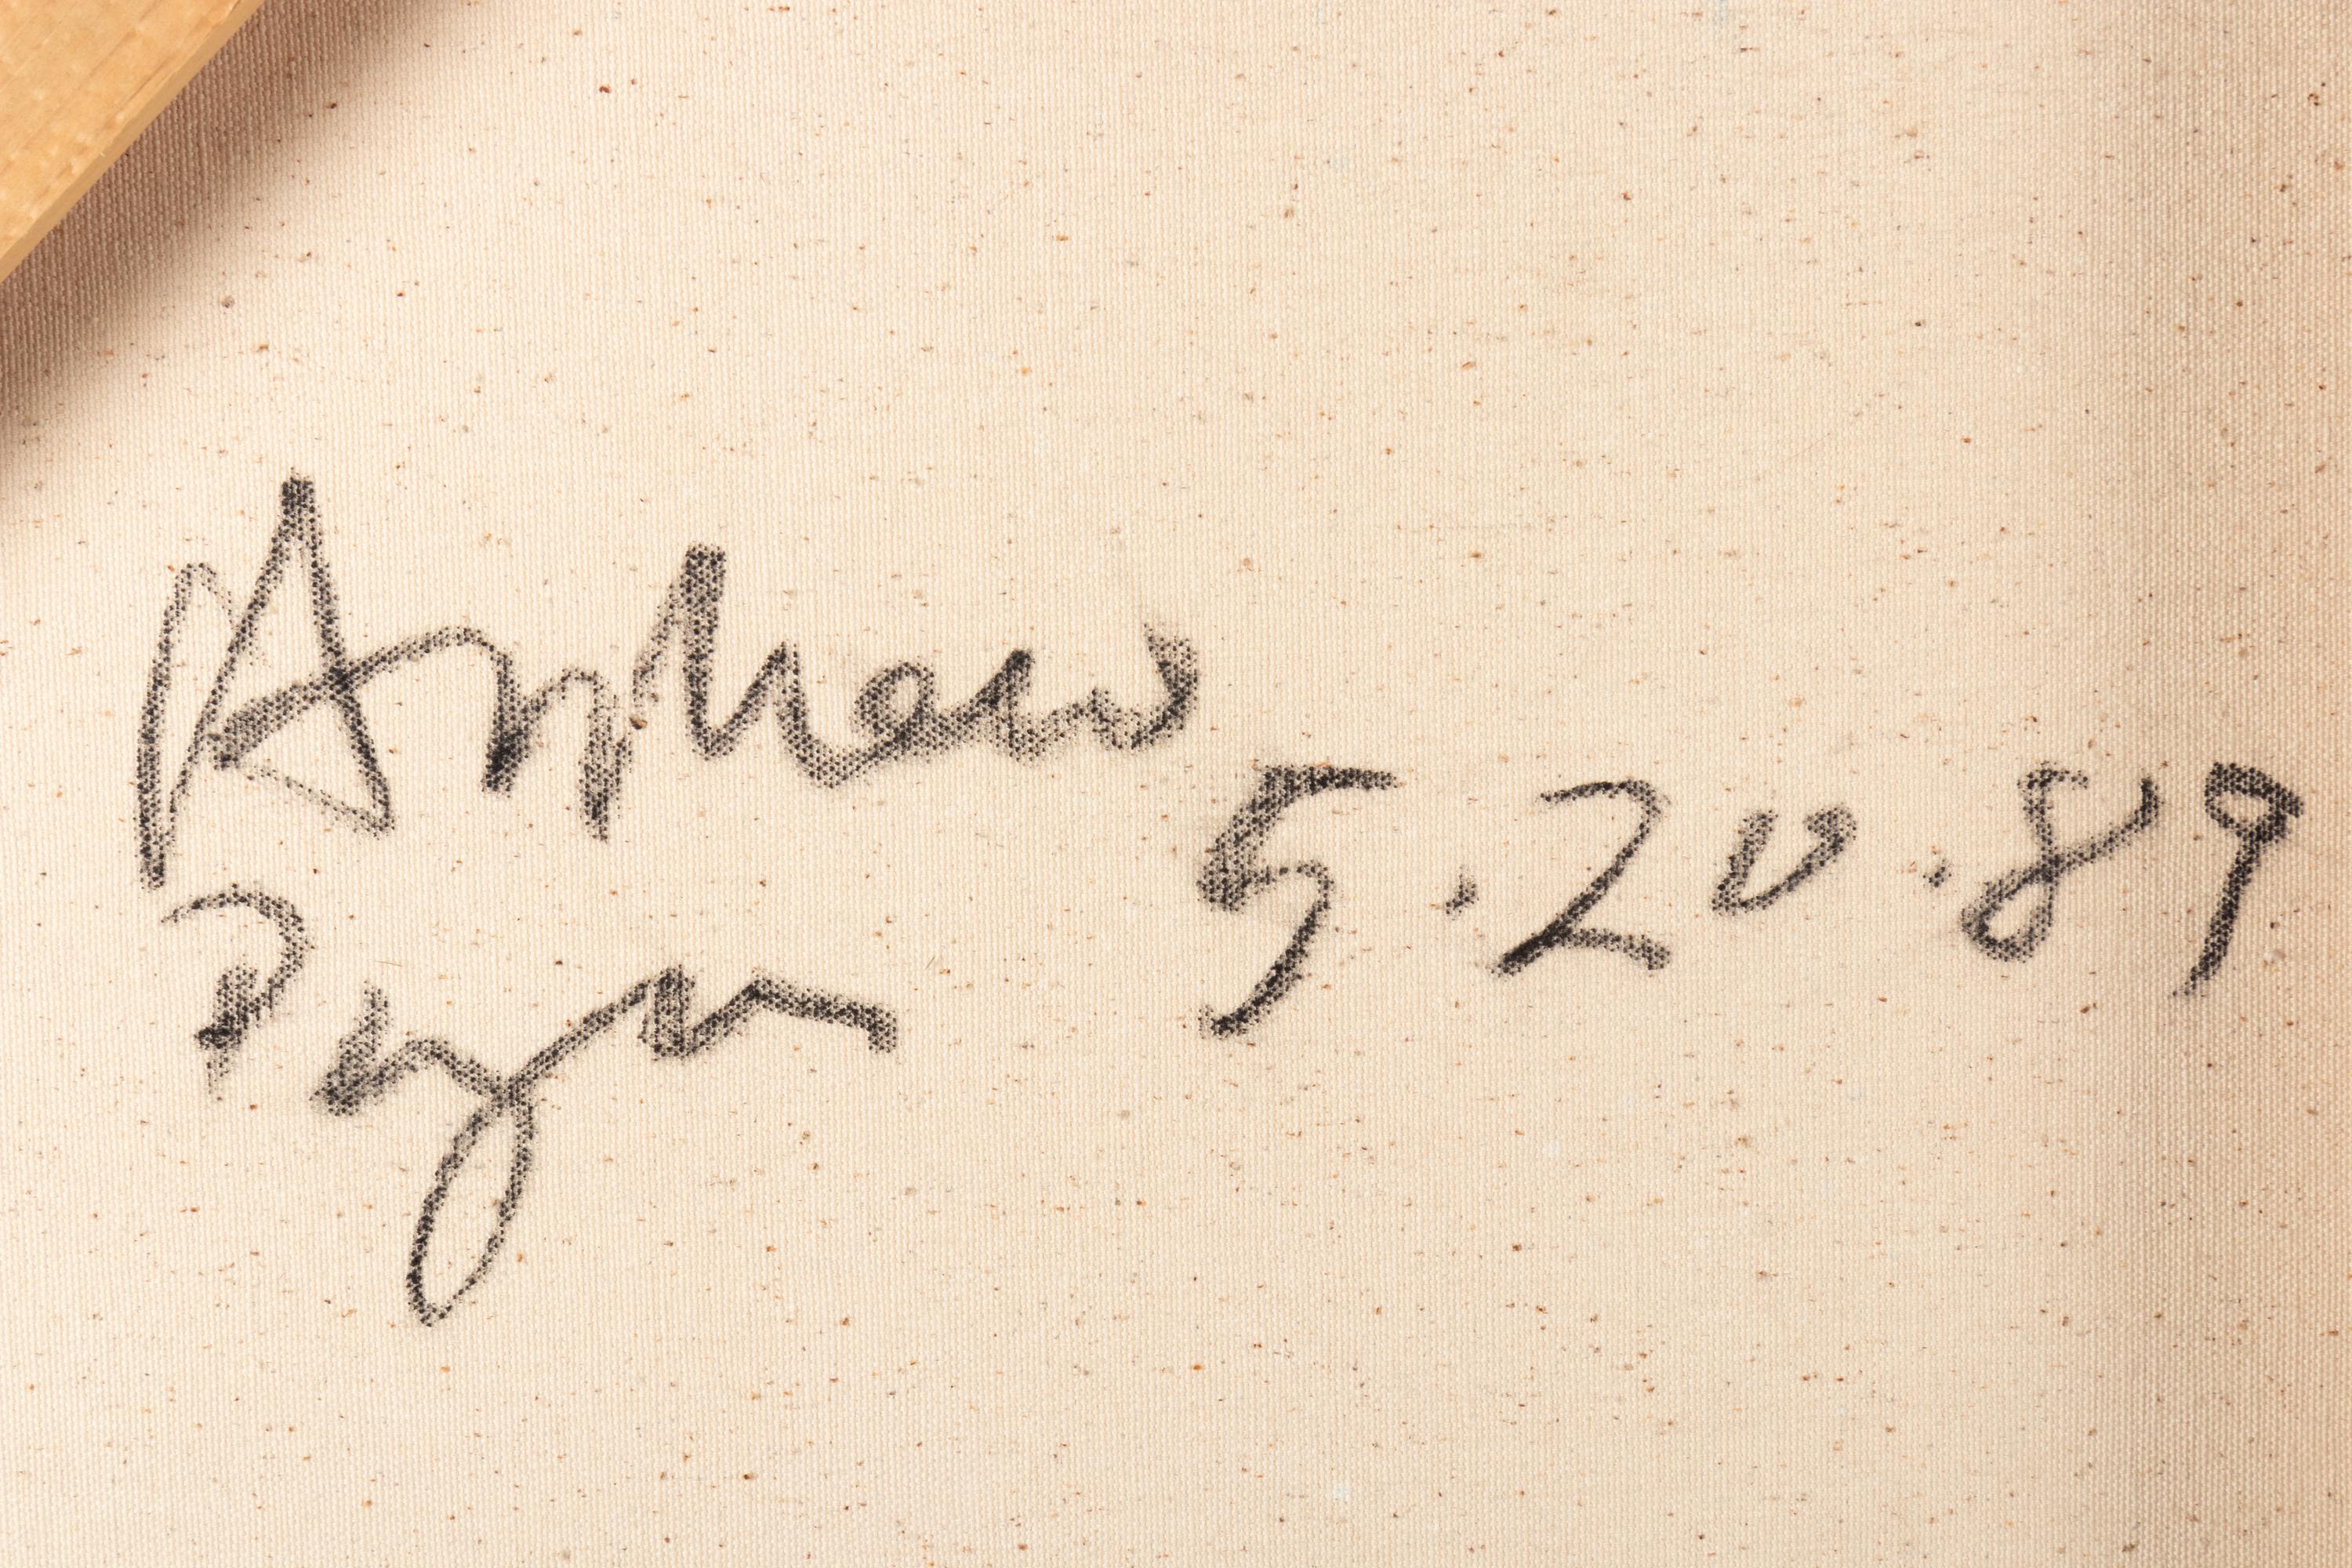 Andrew 5.20.89